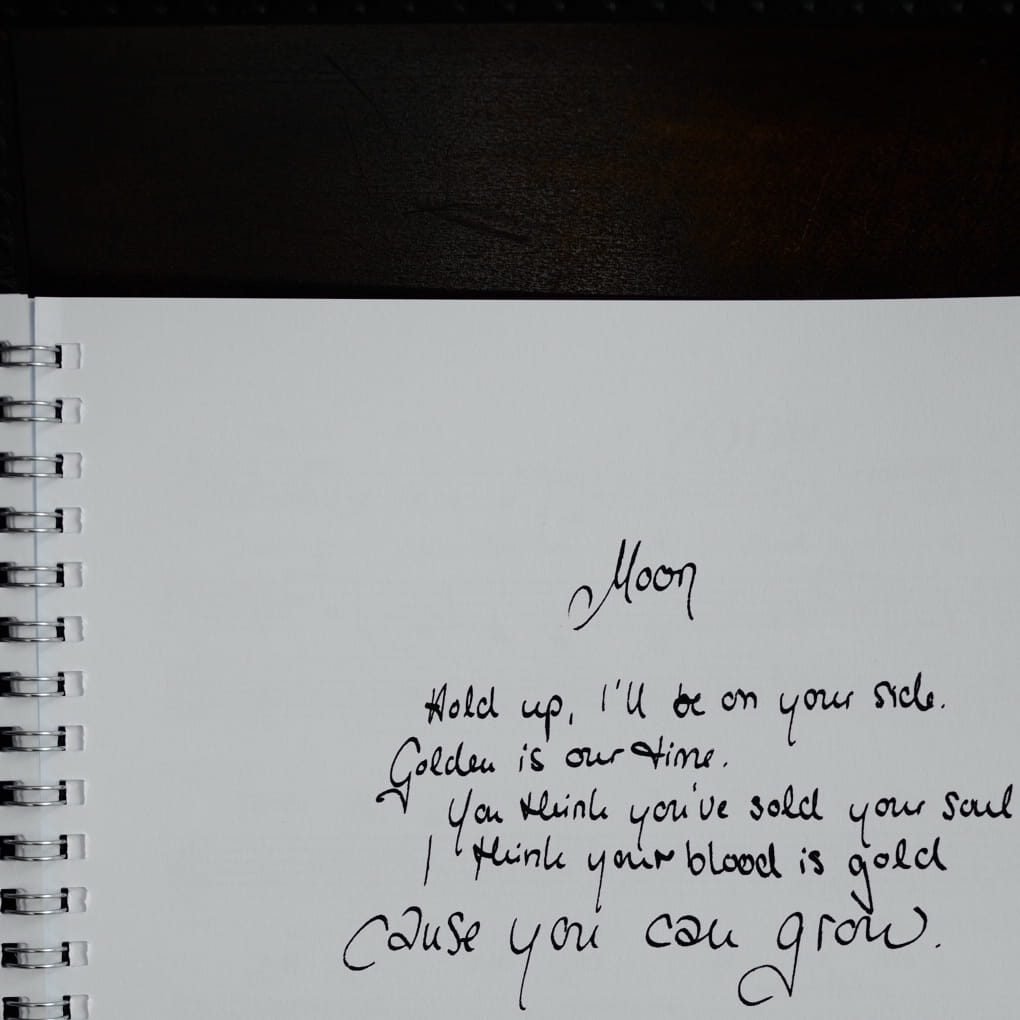 Moon
Hold up, I'll be on your side.
Golden is our time.
You think you've sold your soul
I think your blood is gold
Cause you can grow.